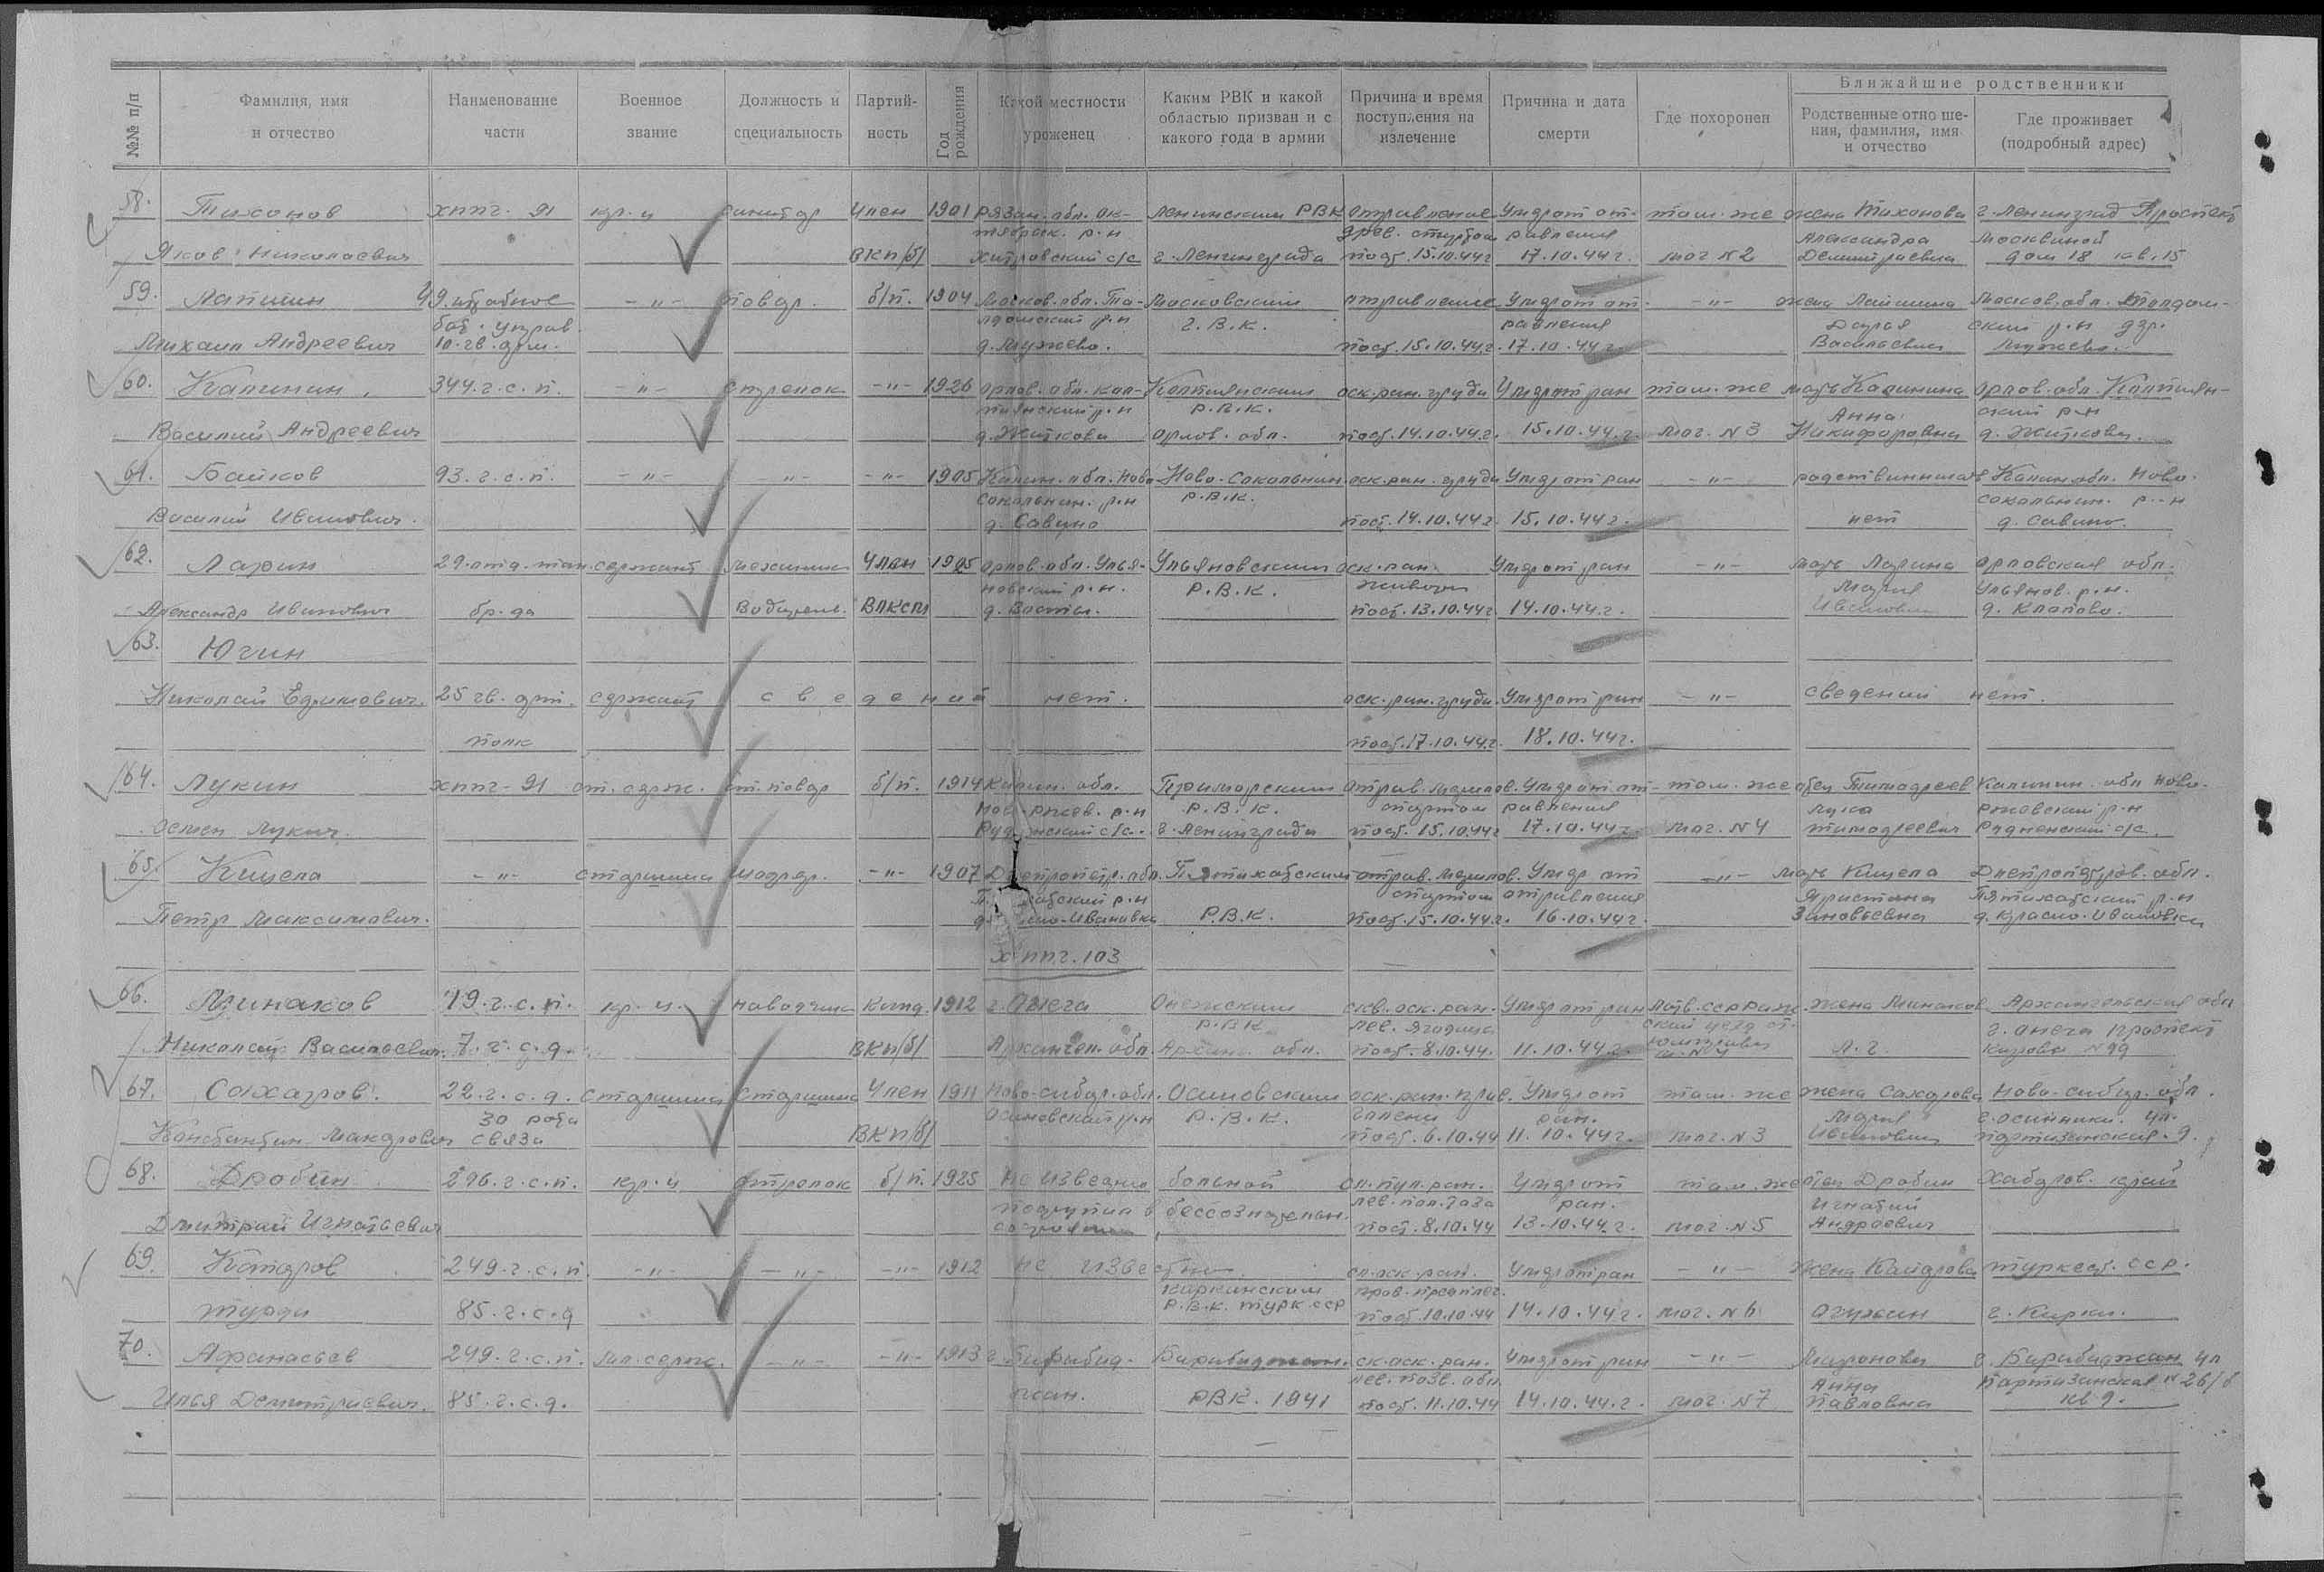 Ближайшие родственники
№№ п/п
Фамилия, имя и отчество
Наименование части
Военное звание
Должность и специальность
Партийность
Год рождения
Какой местности уроженец
Каким РВК и какой областью призван и с какого года в армии
Причина и время поступления на излечение
Причина и дата смерти
Где похоронен
Родственные отношения, фамилия, имя и отчество
Где проживает (подробный адрес)
58. Тихонов хппг. 91 кр-ц санитар член 1901 Рязан. обл. Ок- Ленинским РВК отравление Умер от от- там-же жена Тихонова г. Ленинград Проспект
тябрьск. р-н древ. спиртом равления Александра Москвиной
Яков Николаевич ВКП/б/ с/с г. Ленинграда пост. 15.10.44г 17.10.44г. мог N2 Демитриевна дом 18 кв. 15
59. Лапшин 49. бное -"- повар. б/п. 1904 Москов. обл. Та- Московским отравление Умер от от- -"- жена Лапшина Москов. обл. Талдом-
бат. управ. лдомский р-н г.В.К. равления Дарья ский р-н дер.
Михаил Андреевич 10. гв. арм. д. Мужево. пост. 15.10.44г. 17.10.44г. Васильевна Мужево.
60. Калинин. 344. г.с.п. -"- стрелок -"- 1926 Орлов. обл. Кап- оск. ран. груди Умер от ран там-же мать Калинина Орлов. обл.
р-н Р.В.К. Анна ский р-н
Василий Андреевич д. Житкова Орлов. обл. пост. 14.10.44г. 15.10.44г. мог. N3 Никифоровна д. Житкова.
61. Байков 93. г.с.п. -"- -"- -"- 1905 Калин. обл. Ново- Ново-Сокольнич оск. ран. груди Умер от ран -"- родственников Калин. обл. Ново-
сокольнич. р-н Р.В.К. сокольнич. р-н
Василий Иванович. д. Савино пост. 14.10.44г 15.10.44г. нет д. Савино.
62. Ларин 29. отд. тан. сержант механик Член 1925 Орлов. обл. Улья- Ульяновским оск. ран. Умер от ран -"- мать Ларина Орловская обл.
новский р-н. Р.В.К. живота Мария Ульянов. р-н.
Александр Иванович бр-да Водитель. ВЛКСМ д. пост. 13.10.44г 14.10.44г. Ивановна д. Клапово.
63. Югин
Николай Ефимович. 25 гв. арт. сержант сведений нет. оск. ран. груди. Умер от ран -"- сведений нет.
полк пост. 17.10.44г. 18.10.44г.
64. Лукин хппг-91 ст. серж. ст. повар б/п. 1914 Калин. обл. Приморским отрав. метилов. Умер от от- там-же отец Тимофеев Калинин. обл Ново-
Нов-ржев. р-н Р.В.К. спиртом равления Лука ржевский р-н
Семен Лукич. с/с. г. Ленинграда пост. 15.10.44г 17.10.44г. мог. N4 Тимофеевич Рудненский с/с.
65. Кицела -"- старшина шофер. -"- 1907 Днепропетр. обл. Пятихатским отрав. метилов. Умер от -"- мать Кицела Днепропетров. обл.
р-н спиртом отравления Пятихатский р-н
Петр Максимович. -Ивановка Р.В.К. пост. 15.10.44г. 16.10.44г. Зиновьевна д. Красно-Ивановка
хппг. 103
66. Минаков 19. г.с.п. кр-ц. наводчик канд. 1912 г. Онега Онежским скв. оск. ран. Умер от ран Латв. ССР жена Минаков Архангельская обл
Р.В.К лев. ягодица ский уезд г. Онега проспект
Николай Васильевич. 7. г.с.д. ВКП/б/ Архангел. обл. Арханг. обл. пост. 8.10.44. 11.10.44г. А.Г. Кирова N99
67. Сахаров. 22. г.с.д. старшина старшина Член 1911 Ново-сибир. обл. Осиновским оск. ран. прав. Умер от там-же жена Сахарова Ново-сибир. обл.
30 рота Осиновский р-н Р.В.К. голени ран. Мария г. Осинники. ул.
Константин Макарович связи ВКП/б/ пост. 6.10.44 11.10.44г. мог. N3 Ивановна партизанская. 9.
68. Дробин 296. г.с.п. кр-ц стрелок б/п. 1925 не известно больной сл. пул. ран. Умер от там-же отец Дробин Хабаров. край
поступил в бессознательн. лев. пол. таза ран. Игнатий
Дмитрий Игнатьевич состоянии пост. 8.10.44 13.10.44г. мог. N5 Андреевич
69. Катаров 249. г.с.п. -"- -"- -"- 1912 не известно. сл. оск. ран. Умер от ран -"- жена Катарова Туркест. ССР.
Керкинским прав. предплеч.
Турди 85. г.с.д Р.В.К. Турк. ССР пост. 10.10.44 14.10.44г. мог. N6 г. Керки.
70. Афанасьев 249. г.с.п. мл. серж. -"- -"- 1913 г. Биробид- Биробиджан. ск. оск. ран. Умер от ран -"- Миронова г. Биробиджан ул
лев. подв. обл. Анна Партизанская N 26/б
Илья Демитриевич. 85. г.с.д. жан. РВК. 1941 пост. 11.10.44 14.10.44.г. мог. N7 Павловна кв 9.